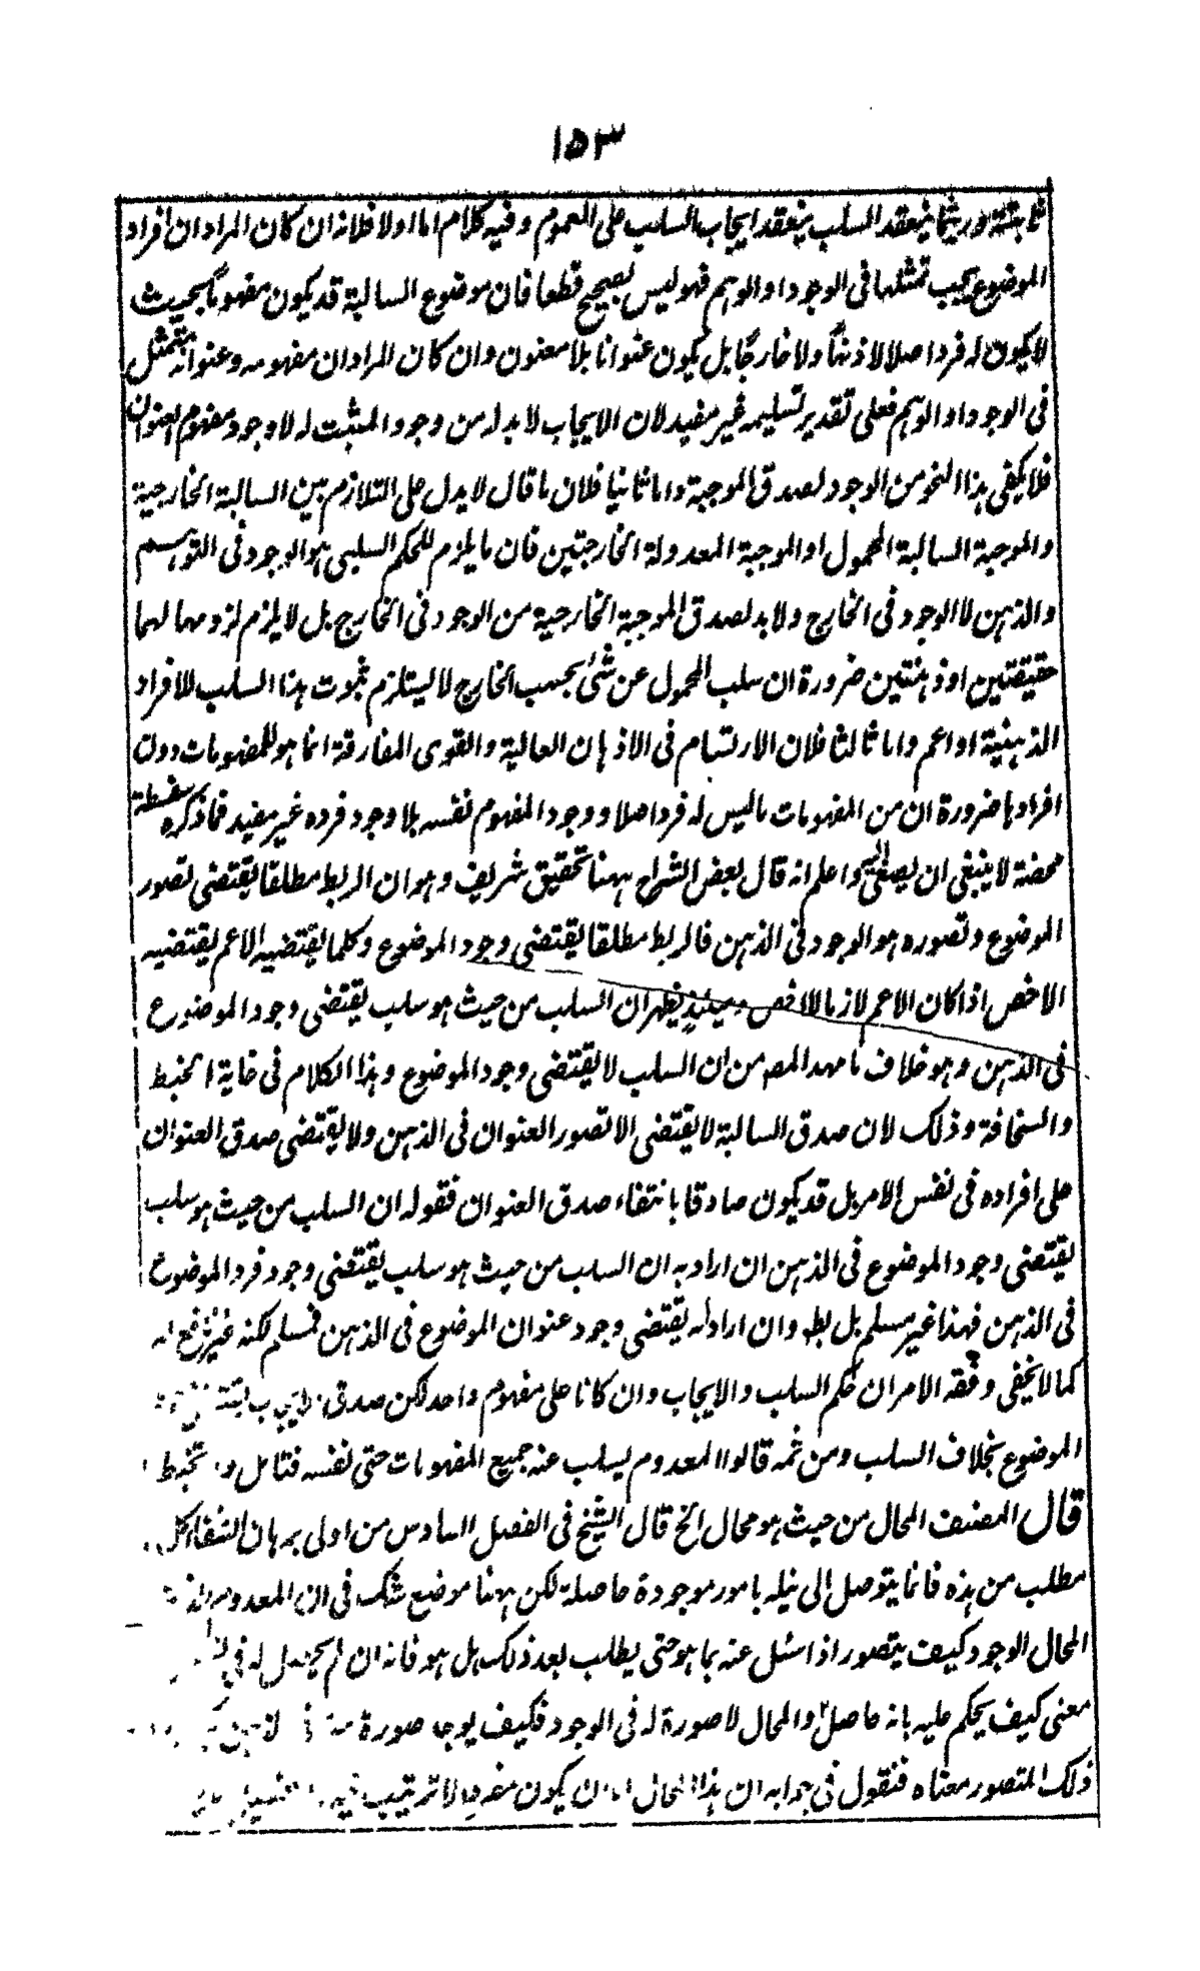 ١٥٣
ثابتة وريثما ينعقد السلب ينعقد ايجاب السلب على العموم وفيه كلام اما اولا فلانه ان كان المراد ان افراد
الموضوع يجب تمثلها فى الوجود او الوهم فهو ليس بصحيح قطعا فان موضوع السالبة قد يكون مفهوما بحيث
لا يكون له فرد اصلا لا ذهنًا ولا خارجًا بل يكون عنوانا بلا معنون وان كان المراد ان مفهومه وعنوانه يتمثل
فى الوجود او الوهم فعلى تقدير تسليمه غير مفيد لان الايجاب لا بد له من وجود المثبت له لا وجود مفهوم العنوان
فلا يكفى هذا النحو من الوجود لصدق الموجبة واما ثانيا فلان ما قال لا يدل على التلازم بين السالبة الخارجية
والموجبة السالبة المحمول او الموجبة المعدولة الخارجتين فان ما يلزم للحكم السلبى هو الوجود فى التوهم
والذهن لا الوجود فى الخارج ولا بد لصدق الموجبة الخارجية من الوجود فى الخارج بل لا يلزم لزومها لهما
حقيقتين او ذهنتين ضرورة ان سلب المحمول عن شئ بحسب الخارج لا يستلزم ثبوت هذا السلب للافراد
الذهنية او اعم واما ثالثا فلان الارتسام فى الاذهان العالية والقوى المفارقة انما هو للمفهومات دون
افرادها ضرورة ان من المفهومات ما ليس له فرد اصلا ووجود المفهوم نفسه بلا وجود فرده غير مفيد فما ذكره سفسطة
محضة لا ينبغى ان يصغى اليه واعلم انه قال بعض الشراح ههنا تحقيق شريف وهو ان الربط مطلقا يقتضى تصور
الموضوع وتصوره هو الوجود فى الذهن فالربط مطلقا يقتضى وجود الموضوع وكلما يقتضيه الاعم يقتضيه
الاخص اذا كان الاعم لازما للاخص وحينئذٍ يظهر ان السلب من حيث هو سلب يقتضى وجود الموضوع
فى الذهن وهو خلاف ما مهد المصـ من ان السلب لا يقتضى وجود الموضوع وهذا الكلام فى غاية الخبط
والسخافة وذلك لان صدق السالبة لا يقتضى الا تصور العنوان فى الذهن ولا يقتضى صدق العنوان
على افراده فى نفس الامر بل قد يكون صادقا بانتفاء صدق العنوان فقوله ان السلب من حيث هو سلب
يقتضى وجود الموضوع فى الذهن ان اراد به ان السلب من حيث هو سلب يقتضى وجود فرد الموضوع
فى الذهن فهذا غير مسلم بل بط وان اراد انه يقتضى وجود عنوان الموضوع فى الذهن فمسلم لكنه غير نافع له
كما لا يخفى وفقه الامر ان حكم السلب والايجاب وان كانا على مفهوم واحد لكن صدق
الموضوع بخلاف السلب ومن ثمه قالوا المعدوم يسلب عنه جميع المفهومات حتى نفسه فتامل ولا تخبط
قال المصنف المحال من حيث هو محال الخ قال الشيخ فى الفصل السادس من اولى برهان الشفاء كل
مطلب من هذه فانما يتوصل الى نيله بامور موجودة حاصلة لكن ههنا موضع شك فى ان المعدوم الذ
المحال الوجود كيف يتصور اذا سئل عنه بما هو حتى يطلب بعد ذلك هل هو فانه ان لم يحصل له فى
معنى كيف يحكم عليه بانه حاصل والمحال لا صورة له فى الوجود فكيف يوجد صورة
ذلك المتصور معناه فنقول فى جوابه ان هذا المحال اما ان يكون مفردا لا ترتيب فيه